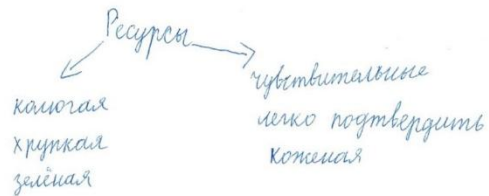 Ресурсы
колюгая
хрупкая
зелёная
чувствительные
легко подтвердить
коженая